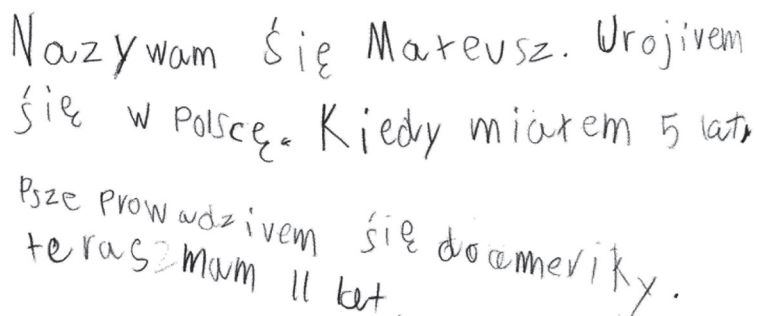 Nazywam śię Mateusz. Urojivem
śię w Polscę. Kiedy miatem 5 lat,
Psze prowadzivem śię do ameriky.
teras mam 11 let.